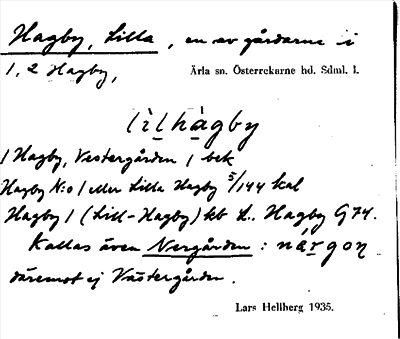 Hagby, Lilla, en av gårdarna i
1, 2 Hagby,
Ärla sn. Österrekarne hd. Sdml. l.
lìlhàgby
1 Hagby, Vestergården 1 bek
Hagby N:o 1 eller Lilla Hagby 5/144 kal
Hagby 1 (Lill-Hagby) kb L. Hagby G 74.
Kallas även Nergården : nárgon
däremot ej Västergården.
Lars Hellberg 1935.